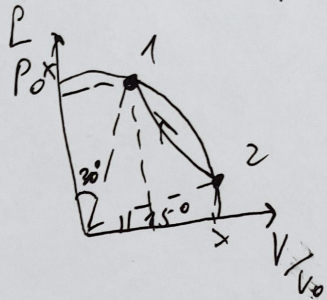 P
P₀
1
30°
15°
2
V/V₀